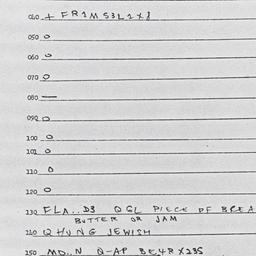 040 + FR1MS3L1X8
050 0
060 0
070 0
080 —
090 0
100 0
101 0
110 0
120 0
130 FLA..D3 QGL PIECE PF BREA
BUTTER OR JAM
140 QHUNG JEWISH
150 MD..N Q-AP BE4R X235